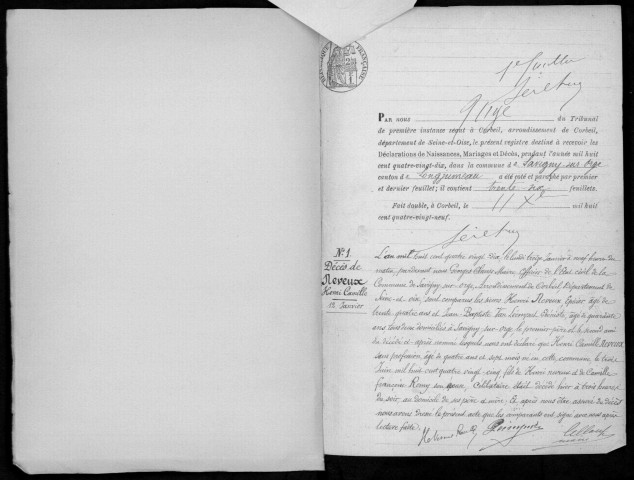 1er feuillet
PAR NOUS Juge du Tribunal
de première instance séant à Corbeil, arrondissement de Corbeil,
département de Seine-et-Oise, le présent registre destiné à recevoir les
Déclarations de Naissances, Mariages et Décès, pendant l'année mil huit
cent quatre-vingt-dix, dans la commune de Savigny sur Orge
canton de Longjumeau a été coté et paraphé par premier
et dernier feuillet; il contient trente feuillets.
Fait double, à Corbeil, le 11 Xbre mil huit
cent quatre-vingt-neuf.
N° 1
Décès de
Neveux
Henri Camille
12 Janvier
L'an mil huit cent quatre vingt dix, le lundi treize Janvier à neuf heures du
matin, pardevant nous Maire Officier de l'Etat civil de la
Commune de Savigny-sur-Orge, Arrondissement de Corbeil, Département de
Seine-et-Oise, sont comparus les sieurs Henri Neveux, Epicier, âgé de
trente quatre ans et Jean Baptiste âgé de quarante
ans, tous deux domiciliés à Savigny-sur-Orge, le premier père et le second ami
du décédé ci-après nommé, lesquels nous ont déclaré que Henri Camille Neveux
sans profession, âgé de quatre ans et sept mois né en cette commune le treize
Juin mil huit cent quatre vingt-cinq, fils de Henri Neveux et de Camille
Françoise Remy son épouse, Célibataire était décédé hier à trois heures
du soir, au domicile de ses père et mère; Et après nous être assuré du décès
nous avons dressé le présent acte que les comparants ont signé avec nous après
lecture faite.